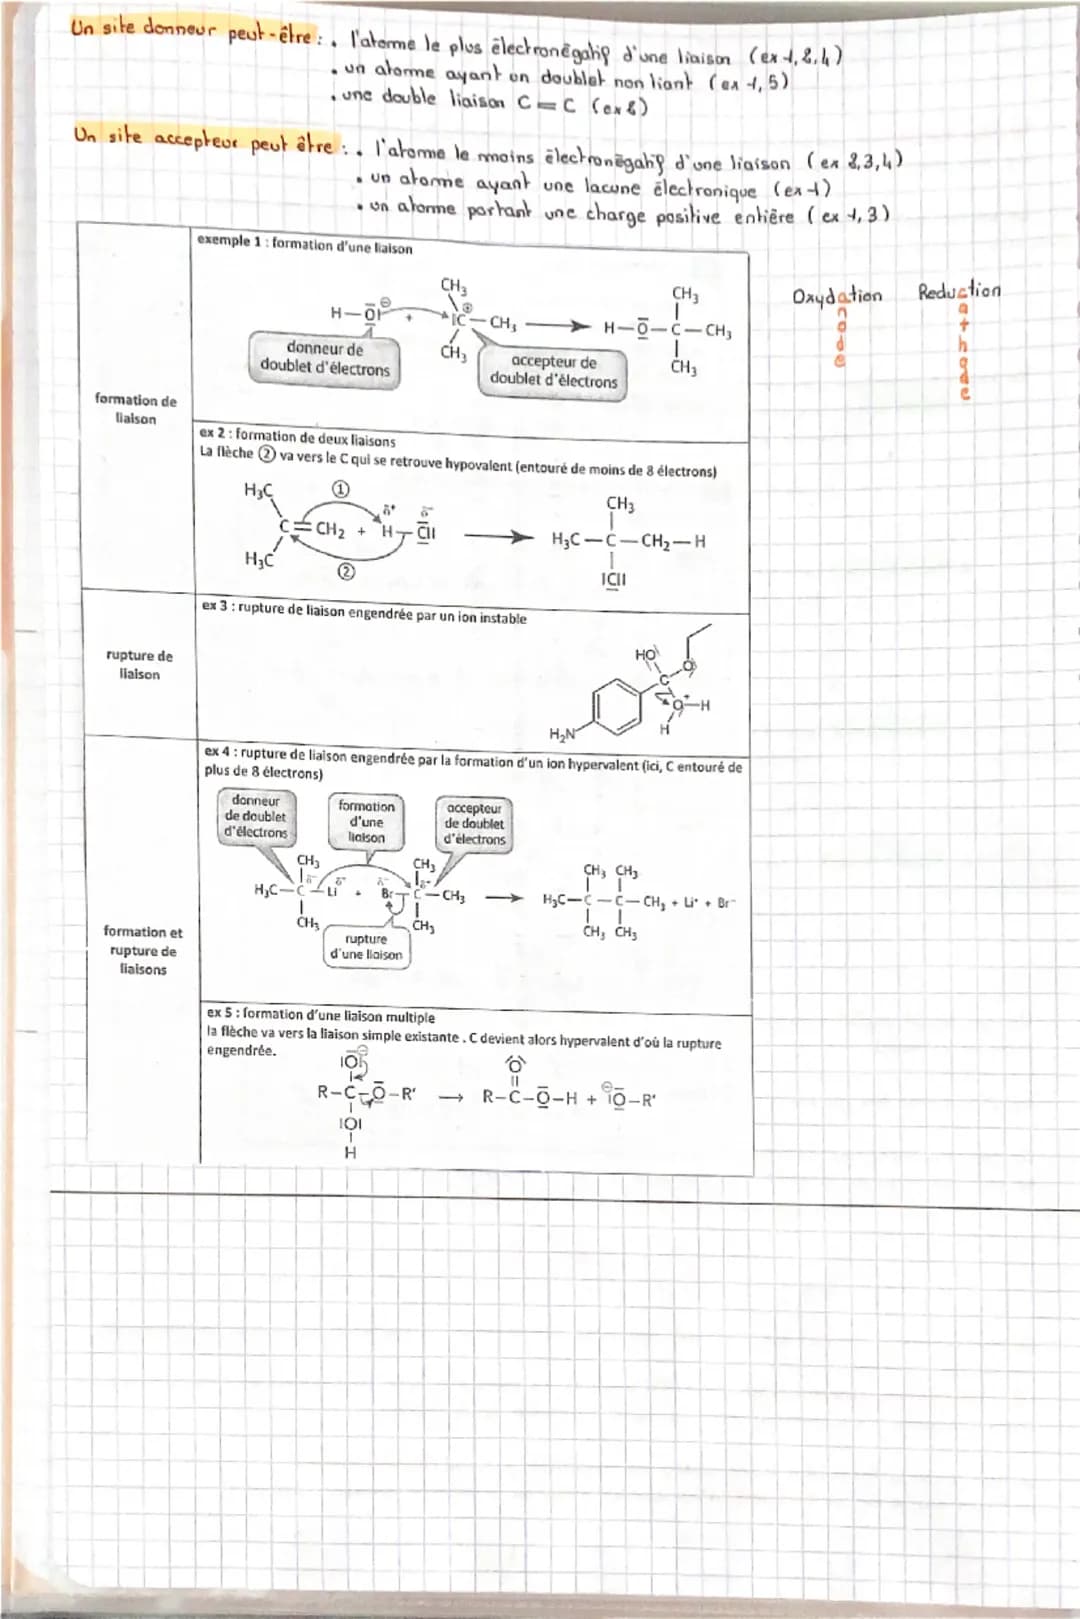 Un site donneur peut-être : . l'atome le plus électronégatif d'une liaison (ex 1,2,4)
. un atome ayant un doublet non liant (ex 1,5)
. une double liaison C=C (ex 2)
Un site accepteur peut être : . l'atome le moins électronégatif d'une liaison (ex 2,3,4)
. un atome ayant une lacune électronique (ex 1)
. un atome portant une charge positive entière (ex 1,3)
exemple 1 : formation d'une liaison
Oxydation
Reduction
anode
cathode
CH3
H-O
+
C-CH3
CH3
CH3
H-O-C-CH3
CH3
donneur de
doublet d'électrons
accepteur de
doublet d'électrons
formation de
liaison
ex 2 : formation de deux liaisons
La flèche ② va vers le C qui se retrouve hypovalent (entouré de moins de 8 électrons)
H3C
①
δ+ δ-
C=CH2 + H-Cl
H3C
②
CH3
H3C-C-CH2-H
Cl
rupture de
liaison
ex 3 : rupture de liaison engendrée par un ion instable
HO
O
C
O+-H
H
H2N
ex 4 : rupture de liaison engendrée par la formation d'un ion hypervalent (ici, C entouré de
plus de 8 électrons)
donneur
de doublet
d'électrons
formation
d'une
liaison
accepteur
de doublet
d'électrons
CH3
H3C-C-Li +
CH3
CH3
Br-C-CH3
CH3
CH3 CH3
H3C-C-C-CH3 + Li+ + Br-
CH3 CH3
rupture
d'une liaison
formation et
rupture de
liaisons
ex 5 : formation d'une liaison multiple
la flèche va vers la liaison simple existante . C devient alors hypervalent d'où la rupture
engendrée.
O
R-C-O-R' → R-C-O-H + O-R'
O
H